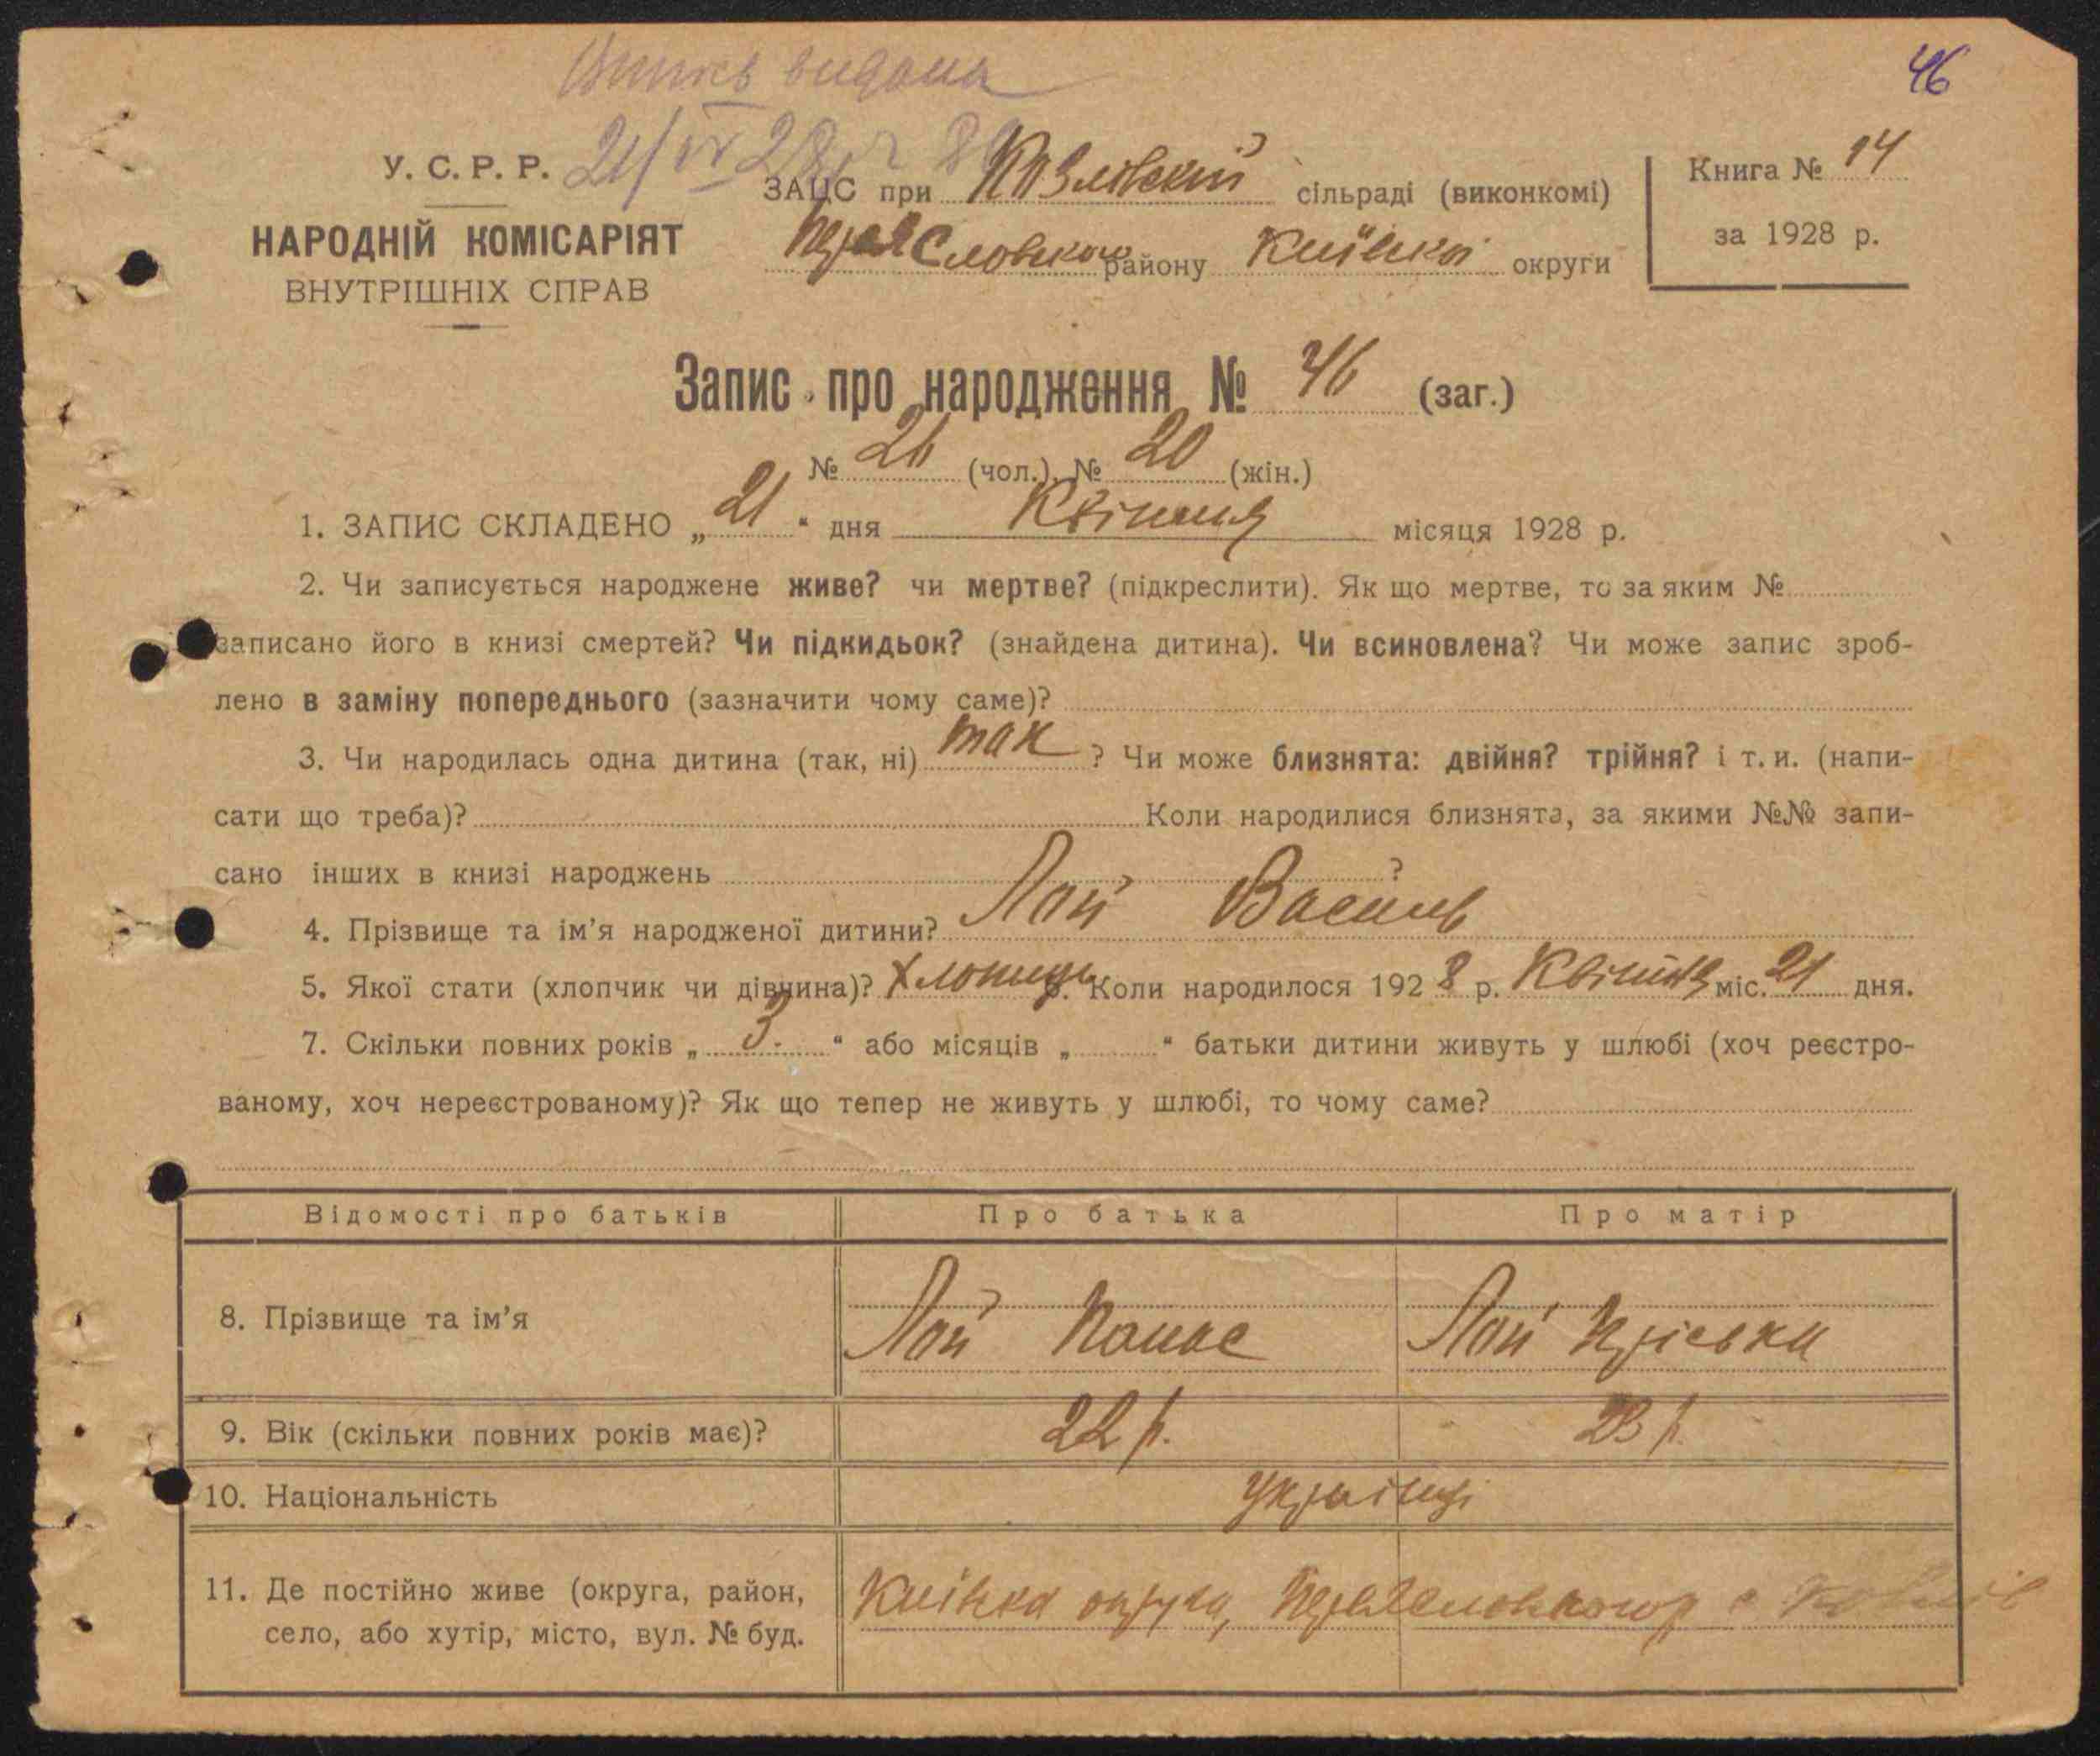 Витяг видана
46
21/IV 28 р
У. С. Р. Р.
НАРОДНІЙ КОМІСАРІЯТ
ВНУТРІШНІХ СПРАВ
ЗАЦС при Козлівській сільраді (виконкомі)
Переяславського району Київської округи
Книга № 14
за 1928 р.
Запис про народження № 46 (заг.)
№ 26 (чол.). № 20 (жін.)
1. ЗАПИС СКЛАДЕНО „ 21 “ дня Квітня місяця 1928 р.
2. Чи записується народжене живе? чи мертве? (підкреслити). Як що мертве, то за яким №
записано його в книзі смертей? Чи підкидьок? (знайдена дитина). Чи всиновлена? Чи може запис зроб-
лено в заміну попереднього (зазначити чому саме)?
3. Чи народилась одна дитина (так, ні) так ? Чи може близнята: двійня? трійня? і т. и. (напи-
сати що треба)? Коли народилися близнята, за якими №№ запи-
сано інших в книзі народжень ?
4. Прізвище та ім’я народженої дитини? Лай Василь
5. Якої стати (хлопчик чи дівчина)? Хлопець 6. Коли народилося 1928 р. Квітня міс. 21 дня.
7. Скільки повних років „ 3. “ або місяців „ “ батьки дитини живуть у шлюбі (хоч реєстро-
ваному, хоч нереєстрованому)? Як що тепер не живуть у шлюбі, то чому саме?
Відомості про батьків Про батька Про матір
8. Прізвище та ім’я Лай Панас Лай Пріська
9. Вік (скільки повних років має)? 22 р. 23 р.
10. Національність Українці
11. Де постійно живе (округа, район,
село, або хутір, місто, вул. № буд.
Київска округа, Переяславського р с Козлів